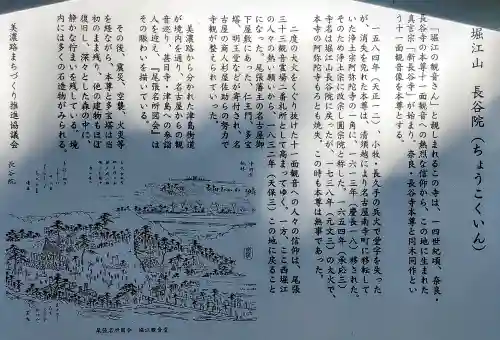 堀江山　長谷院（ちょうこくいん）
「堀江の観音さん」と親しまれるこの寺は、一四世紀頃、奈良・
長谷寺の本尊十一面観音への熱烈な信仰から、この地に生まれた
真言宗「新長谷寺」が始まり、奈良・長谷寺本尊と同木同作とい
う十一面観音像を本尊とする。
一五八四年（天正一二）、小牧・長久手の兵火で堂宇を失った
が、消失を免れた本尊は、清須越により名古屋南寺町に移転して
いた浄土宗阿弥陀寺の一角に一六一三年（慶長一八）移された。
そのため浄土宗に改宗し圓宗院と称した。一六五四年（承応三）
寺名は堀江山長谷院に戻ったが、一七三八年（元文三）の大火で、
本寺の阿弥陀寺もろとも焼失、この時も本尊は無事であった。
二度の大火をくぐり抜けた十一面観音への人々の信仰は、尾張
三十三観音霊場二番札所として高まってゆく。一方、ここ西堀江
の人々の熱い願いから、一八三二年（天保三）この地に戻ること
になった。尾張藩主の名古屋御
下屋敷にあった、仁王門、多宝
塔、明王堂などが寄付され、名
古屋の商人杉屋佐助らの努力で
寺観が整えられていった。
美濃路から分かれた津島街道
が境内を通り、名古屋からの観
音巡り、甚目寺、津島への参詣
人を迎え、『尾張名所図会』は
その賑わいを描いている。
その後、震災、空襲、火災等
を経ながら、本尊と多宝塔は当
初のまま残り、他の建物もほぼ
復旧し、深々とした森の中で、
静かな佇まいを残している。境
内には多くの石造物がみられる。
美濃路まちづくり推進協議会
長谷院
尾張名所図会　堀江観音堂